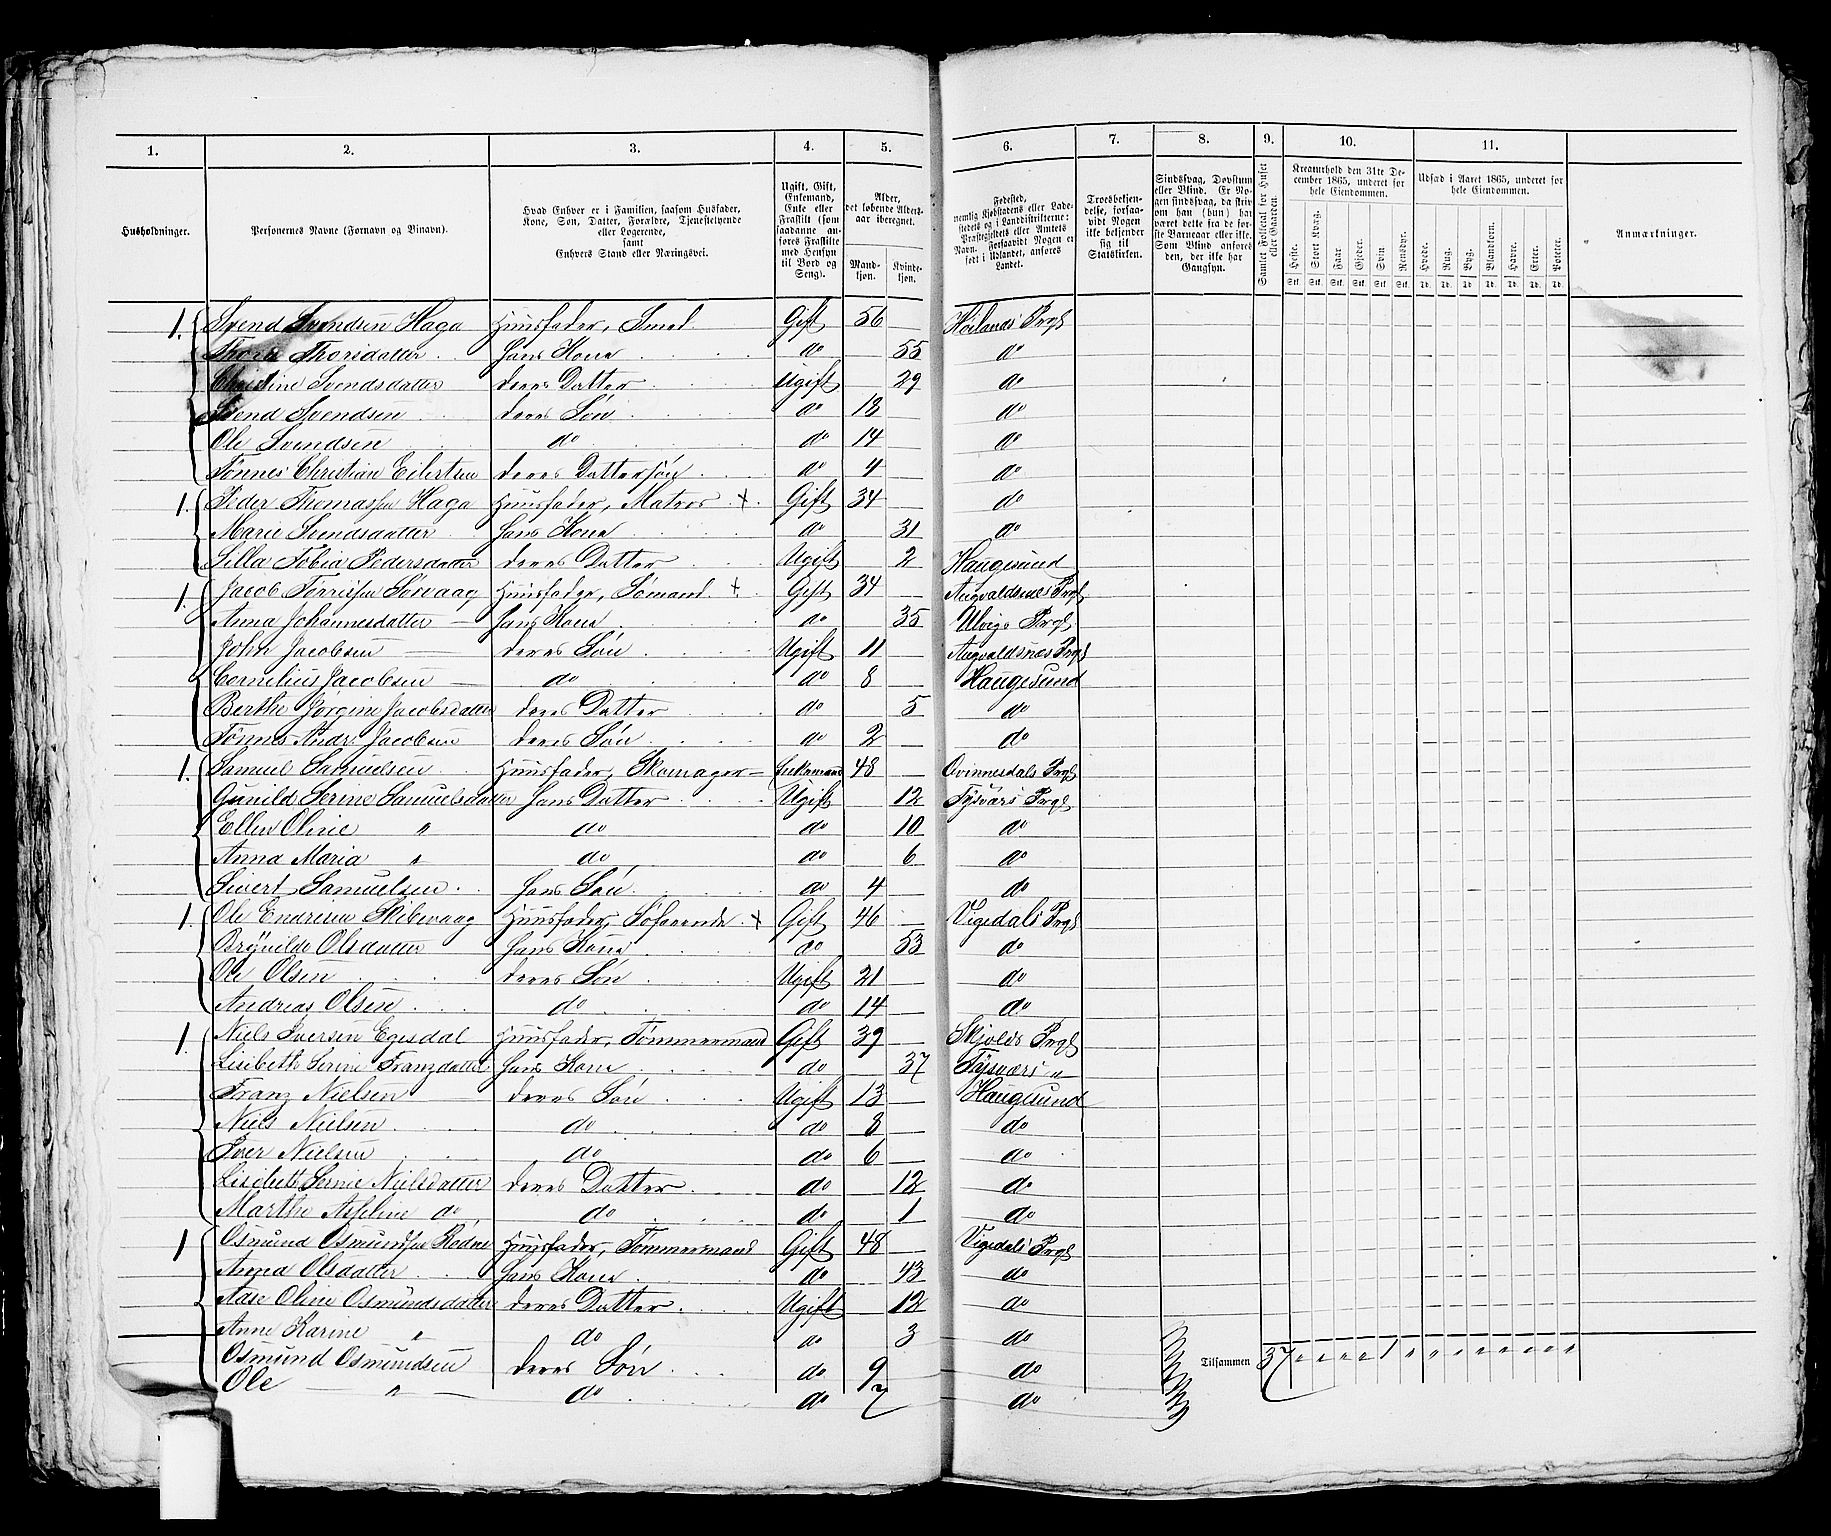 1. 2. 3. 4. 5. 6. 7. 8. 9. 10. 11.
Husholdninger.
Personernes Navne (Fornavn og Tilnavn).
Hvad Enhver er i Familien, saasom Husfader, Kone, Søn, Datter, Forældre, Tjenestetyende eller Logerende, samt Enhvers Stand eller Næringsvei.
Ugift, Gift, Enkemand, Enke eller Fraskilt (som saadanne anføres Fraskilte med Hensyn til Bord og Seng).
Alder, det løbende Aldersaar iberegnet.
Mandkjøn. Kvindekjøn.
Fødested, nemlig Kjøbstadens eller Ladestedets og i Landdistrikterne: Præstegjeldets eller Amtets Navn. Forsaavidt Nogen er født i Udlandet, anføres Landet.
Troesbekjendelse, forsaavidt Nogen ikke bekjender sig til Statskirken.
Sindssvag, Døvstum eller Blind. Er Nogen sindssvag, da skrives om han (hun) har været dette fra de første Barneaar eller ikke. Som Blind anføres den, der ikke har Gangsyn.
Samlet Folketal for Huset eller Gaarden.
Kreaturhold den 31te December 1865, underet for hele Eiendommen.
Heste. Stort Kvæg. Faar. Gjeder. Svin. Rensdyr.
Stk. Stk. Stk. Stk. Stk. Stk.
Udsæd i Aaret 1865, underet for hele Eiendommen.
Hvede. Rug. Byg. Blandkorn. Havre. Erter. Poteter.
Td. Td. Td. Td. Td. Td. Td.
Anmærkninger.
1. Svend Svendsen Haga Huusfader, Smed Gift 56 Høilands Prgl
Thorsdatter hans Kone do 55 do
Christine Svendsdatter deres Datter Ugift 29 do
Svend Svendsen deres Søn do do
Ole Svendsen do do 14 do
Tønnes Christian Eilertsen deres Dattersøn do 4 do
1. Peder Thomassen Haga Huusfader, Matros + Gift 34 do
Marie Svendsdatter hans Kone do 31 do
Silla Tobia Pedersdatter deres Datter Ugift 2 Haugesund
1. Jacob Sørvaag Huusfader, Sømand + Gift 34 Augvaldsnes Prgl
Anna Johannesdatter — hans Kone do 35 Prgl
John Jacobsen — deres Søn Ugift 11 Augvaldsnes Prgl
Cornelius Jacobsen — do do 8 Haugesund
Berthe Jørgine Jacobsdatter deres Datter do 5 do
Tønnes Andr. Jacobsen deres Søn do 2 do
1. Samuel Samuelsen Huusfader, Skomager — Enkemand 48 Qvinnesdals Prgl
Gunild Serine Samuelsdatter hans Datter Ugift 12 Tysvärs Prgl
Ellen Oline " do do 10 do
Anna Maria " do do 6 do
Sivert Samuelsen hans Søn do 4 do
1. Ole Endresen Skibevaag Huusfader, Søfarende + Gift 46 Vigedals Prgl
Brynilde Olsdatter hans Kone do 53 do
Ole Olsen deres Søn Ugift 21 do
Andreas Olsen do do 14 do
1. Niels Iversen Egesdal Huusfader, Tømmermand Gift 39 Skjolds Prgl
Lisibeth Serine Franzdatter hans Kone do 37 Tysværs "
Franz Nielsen deres Søn Ugift 13 Haugesund
Niels Nielsen do do 8 do
Iver Nielsen do do 6 do
Lisibeth Serine Nielsdatter deres Datter do 12 do
Marthe do do do 1 do
1 Osmund Osmundsen Rødne Huusfader, Tømmermand Gift 48 Vigedals Prgl
Anna Olsdatter hans Kone do 43 do
Aase Oline Osmundsdatter deres Datter Ugift 12 do
Anne Karine " do do 3 do
Osmund Osmundsen deres Søn do 9 do
Ole — " — do do 7 do
Tilsammen 37 " " " " 1 " " " " " " " "